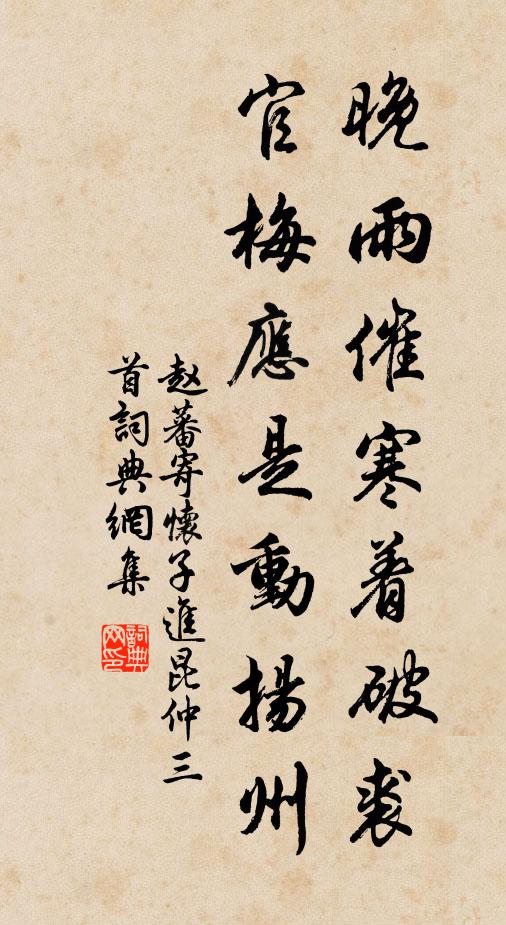 晚雨催寒着破裘
官梅應是動揚州
赵蕃寄懷子進昆仲三
首詞典網集
詞典网印